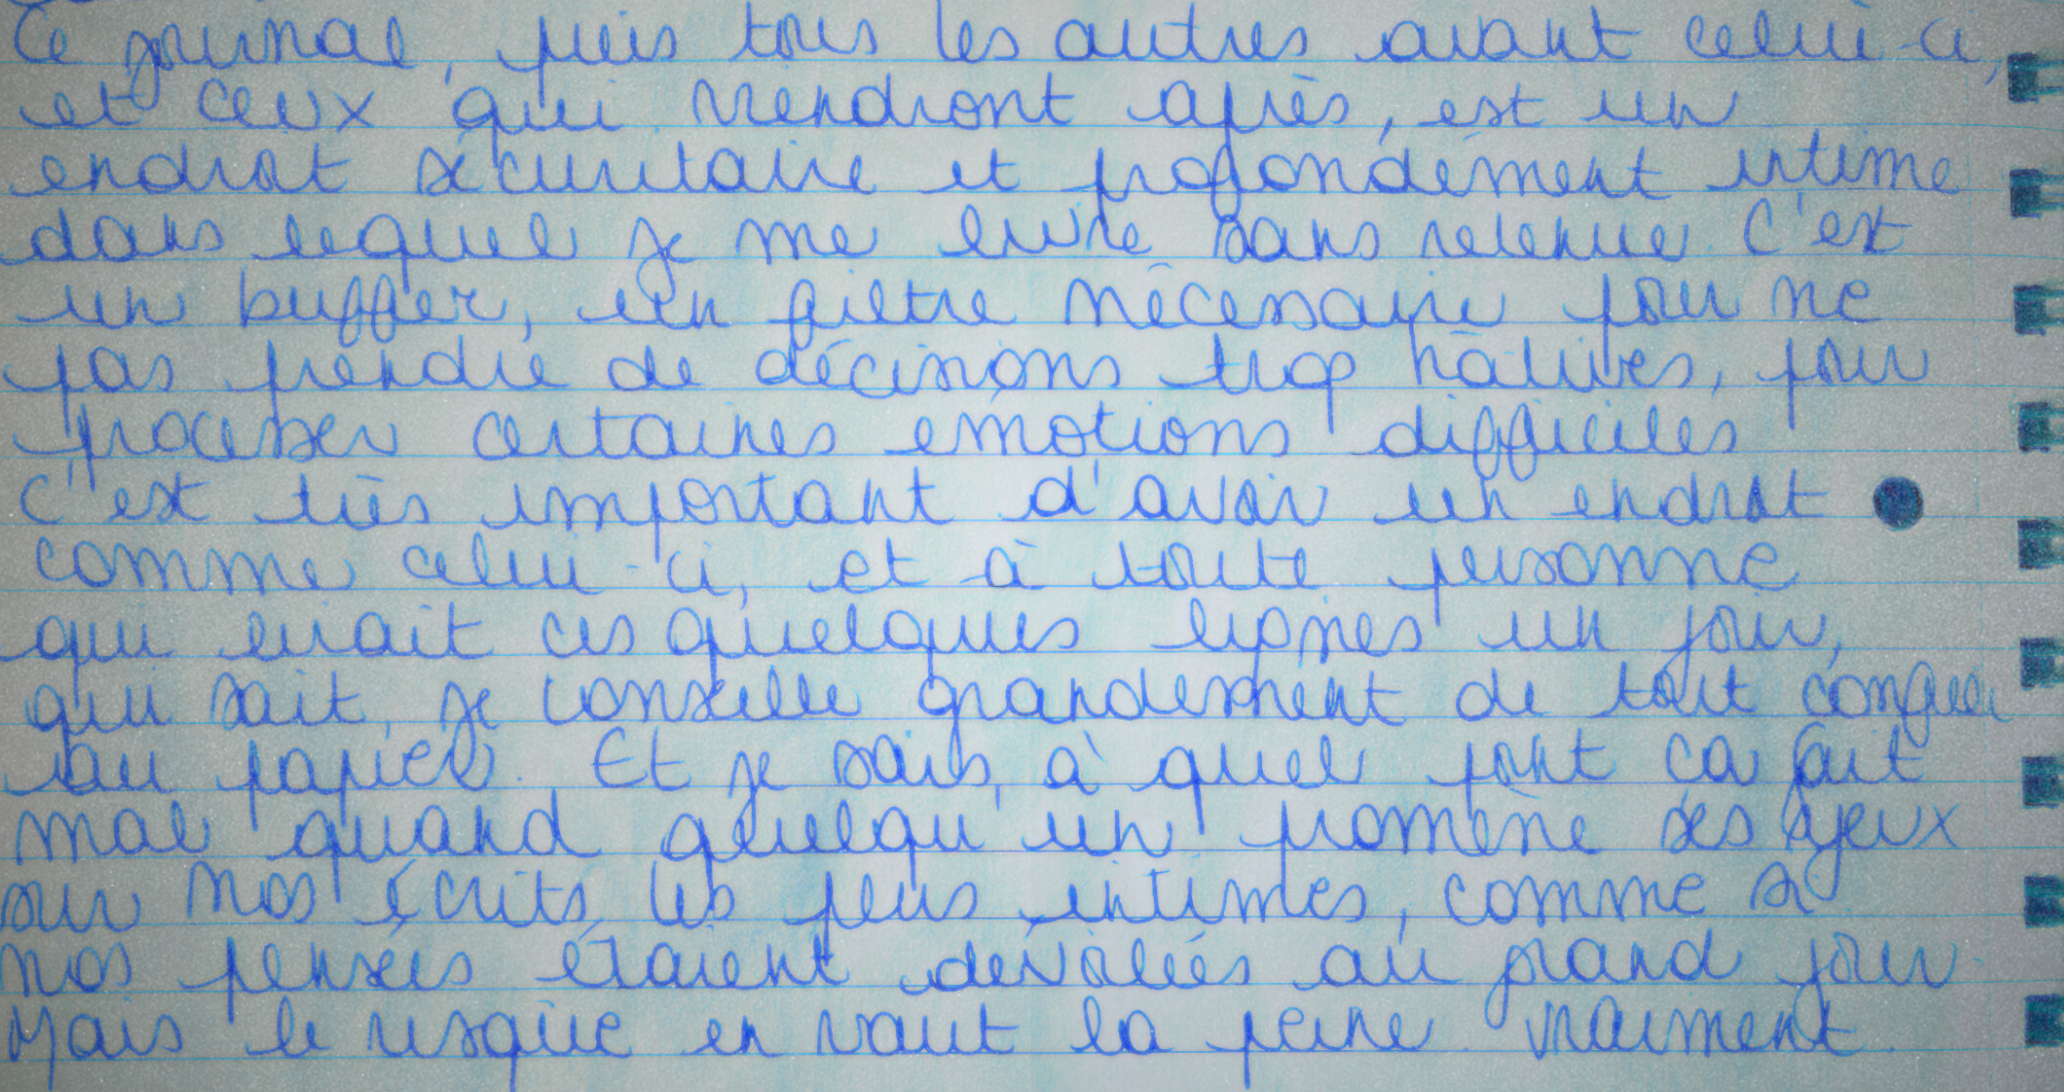 Ce journal, puis tous les autres avant celui-ci,
et ceux qui viendront après, est un
endroit sécuritaire et profondément intime
dans lequel je me livre sans retenue. C'est
un buffer, un filtre nécessaire pour ne
pas prendre de décisions trop hâtives, pour
processer certaines émotions difficiles
C'est très important d'avoir un endroit
comme celui-ci, et à toute personne
qui lirait ces quelques lignes un jour,
qui sait, je conseille grandement de tout
au papier. Et je sais à quel point ça fait
mal quand quelqu'un promène ses yeux
sur nos écrits les plus intimes, comme si
nos pensées étaient dévoilées au grand jour.
Mais le risque en vaut la peine. Vraiment.